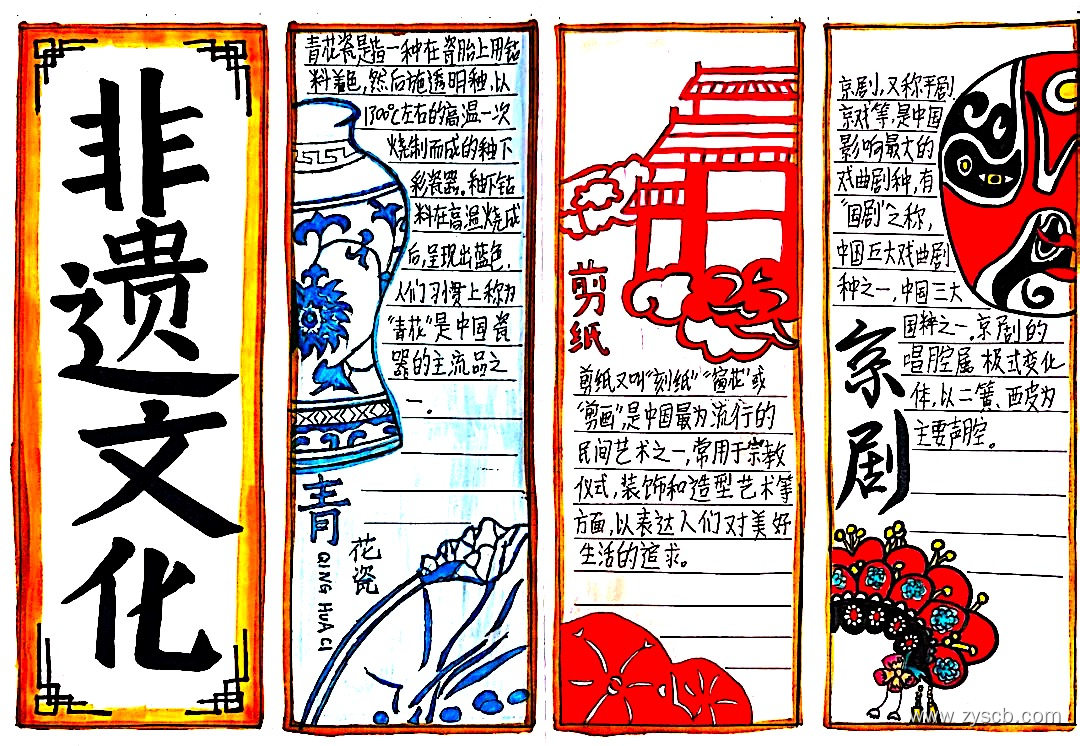 非遗文化
青花瓷是指一种在瓷胎上用钴
料着色,然后施透明种,以
1300℃左右的高温一次
烧制而成的种下
彩瓷器。种下钴
料在高温烧成
后,呈现出蓝色,
人们习惯上称为
“青花”是中国瓷
器的主流品之
一.
青
花瓷
QING HUA CI
剪纸
剪纸又叫“刻纸”“窗花”或
“剪画”,是中国最为流行的
民间艺术之一,常用于宗教
仪式,装饰和造型艺术等
方面,以表达人们对美好
生活的追求。
京剧,又称平剧
京戏等,是中国
影响最大的
戏曲剧种,有
“国剧”之称,
中国五大戏曲剧
种之一,中国三大
国粹之一.京剧的
唱腔属 板式变化
体,以二簧、西皮为
主要声腔。
京剧
www.zyscb.com